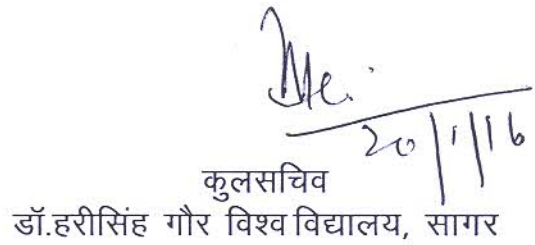 20/1/16
कुलसचिव
डॉ.हरीसिंह गौर विश्वविद्यालय, सागर